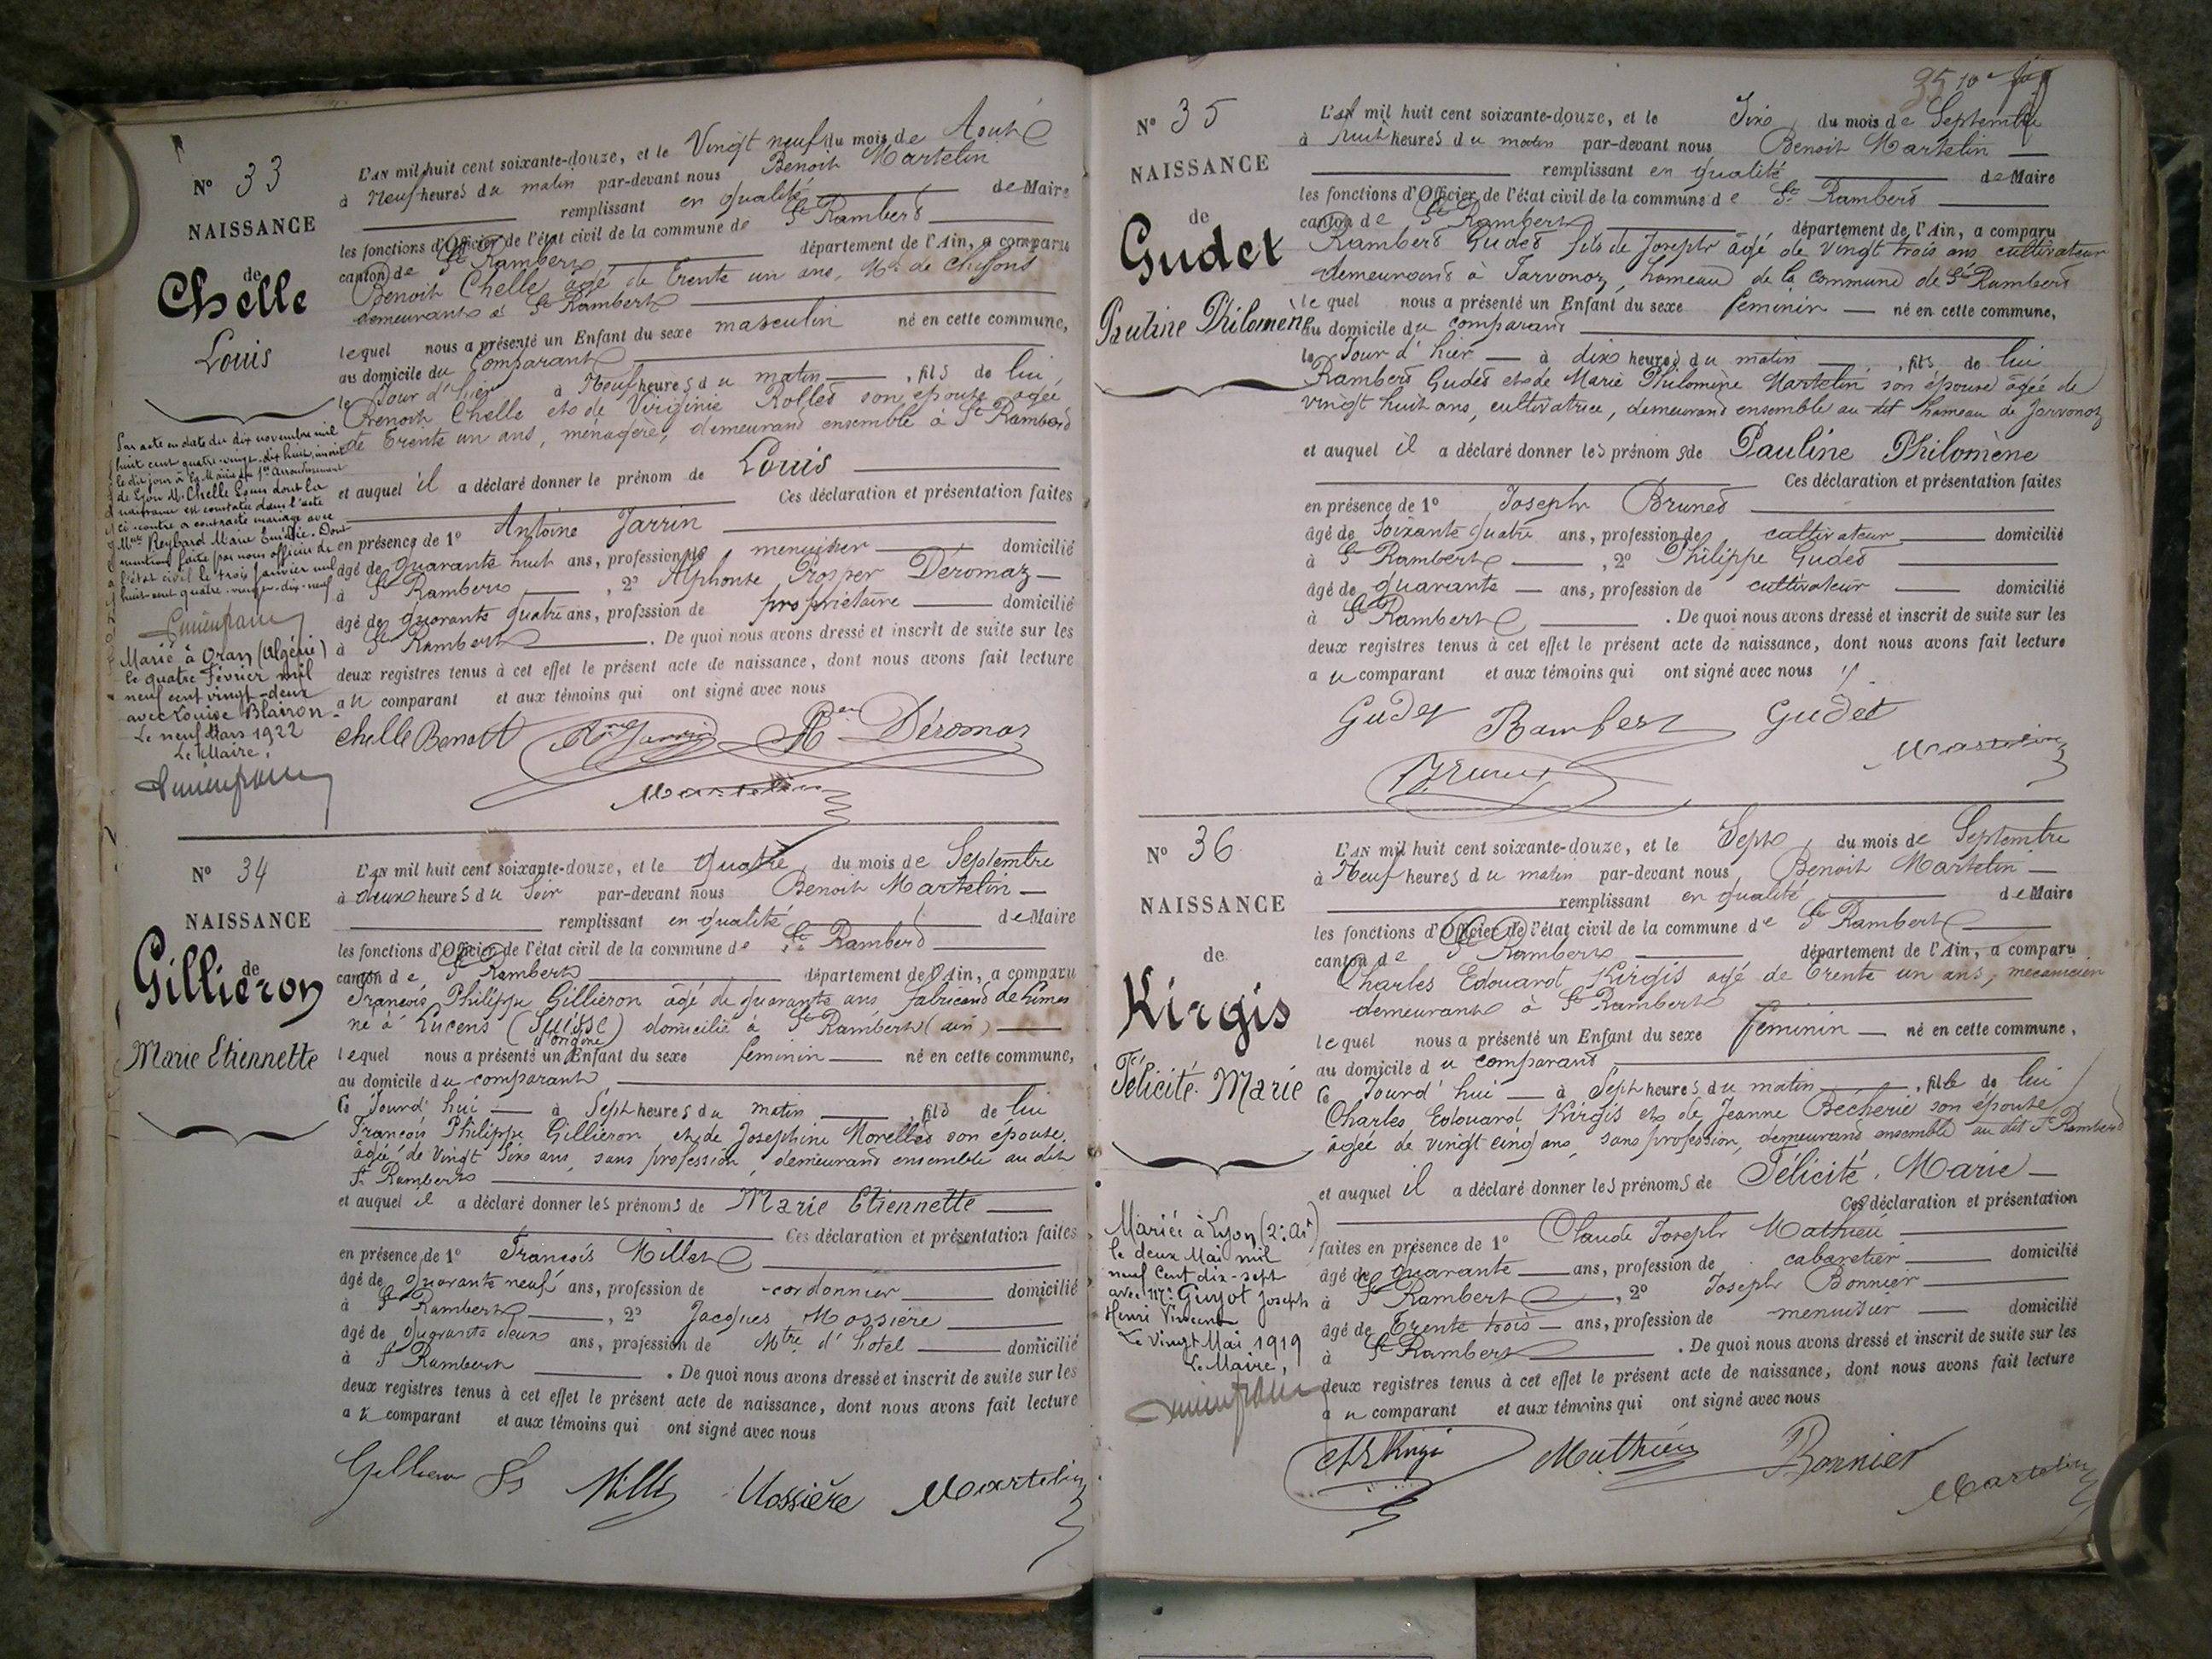 N° 33
NAISSANCE
de
Chelle
Louis
L'AN mil huit cent soixante-douze, et le Vingt neuf du mois de Août
à Neuf heures du matin par-devant nous Benoit Martelin
remplissant en qualité de Maire
les fonctions d'Officier de l'état civil de la commune de St Rambert
canton de St Rambert département de l'Ain, a comparu
Benoit Chelle âgé de trente un ans, Md de chiffons
demeurant à St Rambert
lequel nous a présenté un Enfant du sexe masculin né en cette commune,
au domicile du Comparant
le Jour d'hier à Neuf heures du matin, fils de lui
Benoit Chelle et de Virginie Rollet son épouse âgée
de trente un ans, ménagère, demeurant ensemble à St Rambert
et auquel il a déclaré donner le prénom de Louis
Ces déclaration et présentation faites
en présence de 1° Antoine Jarrin
âgé de quarante huit ans, profession de menuisier domicilié
à St Rambert, 2° Alphonse Prosper Déromaz
âgé de quarante quatre ans, profession de propriétaire domicilié
à St Rambert. De quoi nous avons dressé et inscrit de suite sur les
deux registres tenus à cet effet le présent acte de naissance, dont nous avons fait lecture
au comparant et aux témoins qui ont signé avec nous
Chelle Benoit Jarrin Déromaz
Martelin
Par acte en date du dix novembre mil
huit cent quatre-vingt-dix huit, inscrit
le dit jour à la Mairie du 1er Arrondissement
de Lyon M. Chelle Louis dont la
naissance est constatée dans l'acte
ci-contre a contracté mariage avec
Mlle Reybard Marie Emélie. Dont
mention faite par nous officier de
l'état civil le trois janvier mil
huit cent quatre-vingt-dix-neuf
Marié à Oran (Algérie)
le quatre Février mil
neuf cent vingt-deux
avec Louise Blairon
Le neuf Mars 1922
Le Maire,
N° 34
NAISSANCE
de
Gilliéron
Marie Etiennette
L'AN mil huit cent soixante-douze, et le quatre du mois de Septembre
à deux heures du Soir par-devant nous Benoit Martelin
remplissant en qualité de Maire
les fonctions d'Officier de l'état civil de la commune de St Rambert
canton de St Rambert département de l'Ain, a comparu
François Philippe Gilliéron âgé de quarante ans fabricant de limes
né à Lucens (Suisse) domicilié à St Rambert (ain)
d'origine
lequel nous a présenté un Enfant du sexe feminin né en cette commune,
au domicile du comparant
ce Jourd'hui à Sept heures du matin, fils de lui
François Philippe Gilliéron et de Josephine Morellet son épouse,
âgée de vingt six ans, sans profession, demeurant ensemble au dit
St Rambert
et auquel il a déclaré donner les prénoms de Marie Etiennette
Ces déclaration et présentation faites
en présence de 1° François Millet
âgé de quarante neuf ans, profession de cordonnier domicilié
à St Rambert, 2° Jacques Mossière
âgé de quarante deux ans, profession de Mtre d'hotel domicilié
à St Rambert. De quoi nous avons dressé et inscrit de suite sur les
deux registres tenus à cet effet le présent acte de naissance, dont nous avons fait lecture
au comparant et aux témoins qui ont signé avec nous
Mossière Martelin
35
N° 35
NAISSANCE
de
Gudet
Pauline Philomène
L'AN mil huit cent soixante-douze, et le Six du mois de Septembre
à huit heures du matin par-devant nous Benoit Martelin
remplissant en qualité de Maire
les fonctions d'Officier de l'état civil de la commune de St Rambert
canton de St Rambert département de l'Ain, a comparu
Rambert Gudet fils de Joseph âgé de vingt trois ans cultivateur
demeurant à Javornoz, hameau de la Commune de St Rambert
lequel nous a présenté un Enfant du sexe feminin né en cette commune,
au domicile du comparant
le Jour d'hier à dix heures du matin, fils de lui
Rambert Gudet et de Marie Philomène Martelin son épouse âgée de
vingt huit ans, cultivatrice, demeurant ensemble au dit hameau de Javornoz
et auquel il a déclaré donner les prénoms de Pauline Philomène
Ces déclaration et présentation faites
en présence de 1° Joseph Brunet
âgé de soixante quatre ans, profession de cultivateur domicilié
à St Rambert, 2° Philippe Gudet
âgé de quarante ans, profession de cultivateur domicilié
à St Rambert. De quoi nous avons dressé et inscrit de suite sur les
deux registres tenus à cet effet le présent acte de naissance, dont nous avons fait lecture
au comparant et aux témoins qui ont signé avec nous
Gudet Rambert Gudet
Brunet Martelin
N° 36
NAISSANCE
de
Kirgis
Félicité Marie
L'AN mil huit cent soixante-douze, et le Sept du mois de Septembre
à Neuf heures du matin par-devant nous Benoit Martelin
remplissant en qualité de Maire
les fonctions d'Officier de l'état civil de la commune de St Rambert
canton de St Rambert département de l'Ain, a comparu
Charles Edouard Kirgis âgé de trente un ans, mecanicien
demeurant à St Rambert
lequel nous a présenté un Enfant du sexe feminin né en cette commune,
au domicile du comparant
ce Jourd'hui à Sept heures du matin, fille de lui
Charles Edouard Kirgis et de Jeanne Bécherie son épouse
âgée de vingt cinq ans, sans profession, demeurant ensemble au dit St Rambert
et auquel il a déclaré donner les prénoms de Félicité Marie
Ces déclaration et présentation
faites en présence de 1° Claude Joseph Mathieu
âgé de quarante ans, profession de cabaretier domicilié
à St Rambert, 2° Joseph Bonnier
âgé de Trente trois ans, profession de menuisier domicilié
à St Rambert. De quoi nous avons dressé et inscrit de suite sur les
deux registres tenus à cet effet le présent acte de naissance, dont nous avons fait lecture
au comparant et aux témoins qui ont signé avec nous
Mathieu Bonnier Martelin
Mariée à Lyon (2e Art)
le deux Mai mil
neuf Cent dix-sept
avec Mr Guyot Joseph
Henri Vincent
Le vingt Mai 1919
Le Maire,